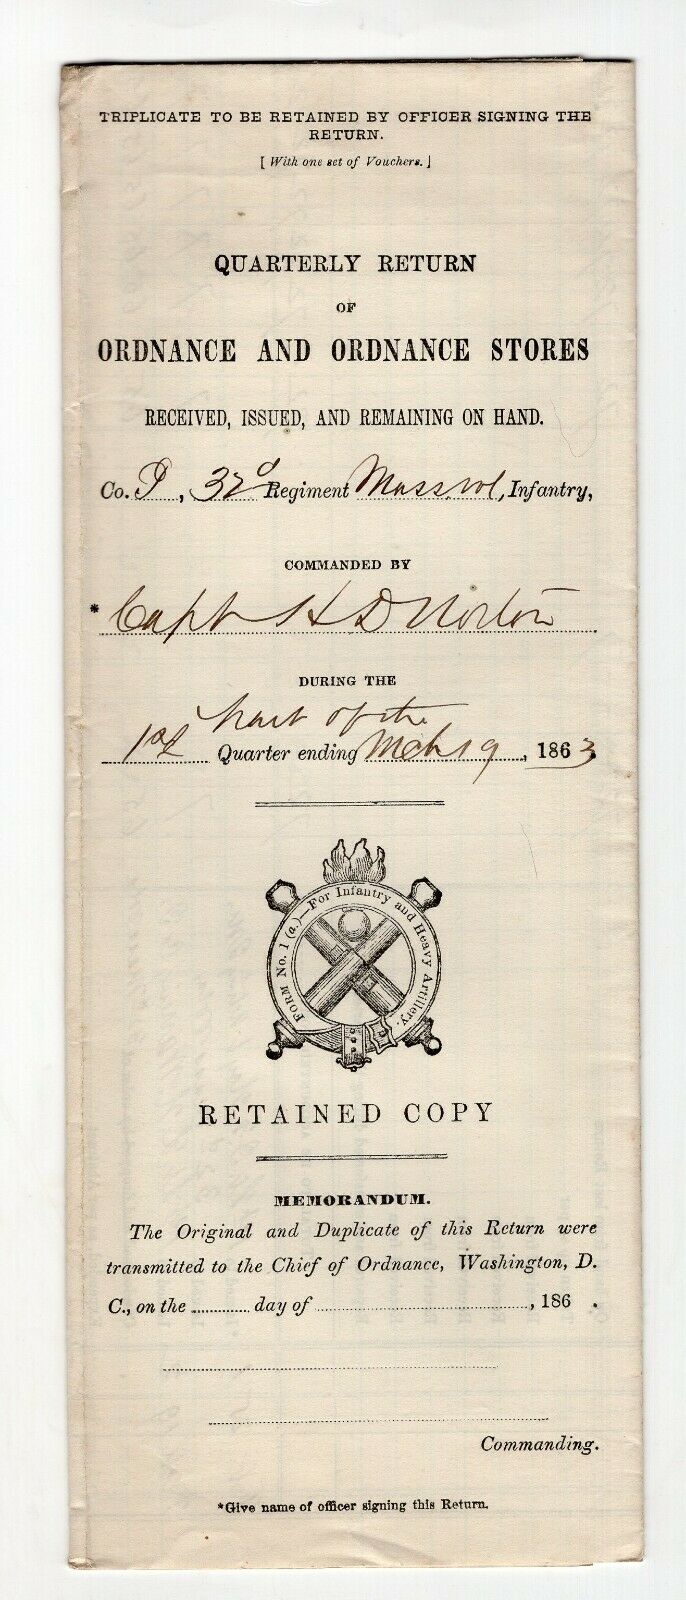 TRIPLICATE TO BE RETAINED BY OFFICER SIGNING THE
RETURN.
[ With one set of Vouchers. ]
QUARTERLY RETURN
OF
ORDNANCE AND ORDNANCE STORES
RECEIVED, ISSUED, AND REMAINING ON HAND.
Co. I, 32d Regiment Mass. vol, Infantry,
COMMANDED BY
*Capt H D Norton
DURING THE
part of the
1st Quarter ending Mch 19, 1863
FORM No. 1 (a.)—For Infantry and Heavy Artillery.
RETAINED COPY
MEMORANDUM.
The Original and Duplicate of this Return were
transmitted to the Chief of Ordnance, Washington, D.
C., on the ............ day of ............................................, 186 .
Commanding.
*Give name of officer signing this Return.